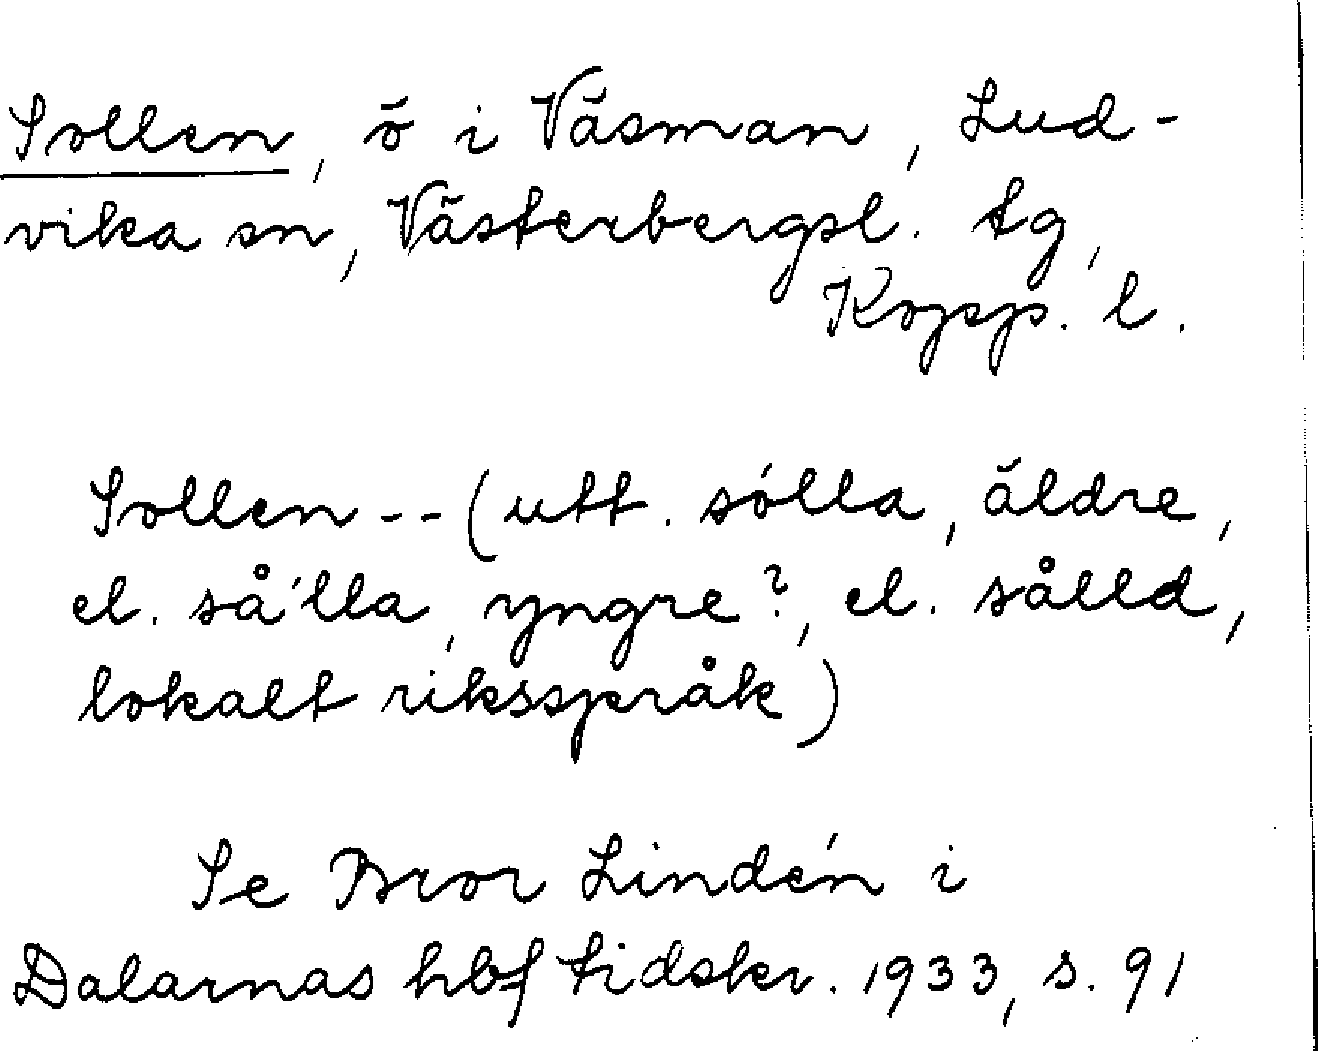 Sollen, ö i Väsman, Lud-
vika sn, Västerbergsl. tg,
Kopp. l.
Sollen -- (utt. sólla, äldre,
el. så'lla, yngre?, el. sålld,
lokalt riksspråk)
Se Bror Lindén i
Dalarnas hbf tidskr. 1933, s. 91